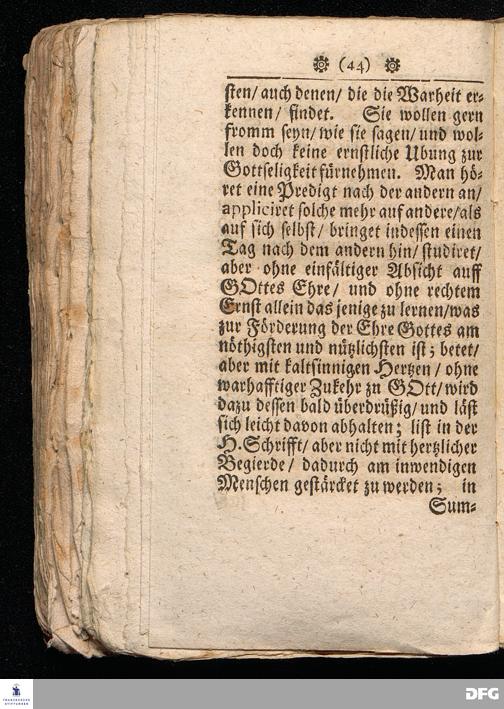 (44)
sten/ auch denen/ die die Warheit er-
kennen/ findet. Sie wollen gern
fromm seyn/ wie sie sagen/ und wol-
len doch keine ernstliche Ubung zur
Gottseligkeit fürnehmen. Man hö-
ret eine Predigt nach der andern an/
appliciret solche mehr auf andere/als
auf sich selbst/ bringet indessen einen
Tag nach dem andern hin/ studiret/
aber ohne einfältiger Absicht auff
GOttes Ehre/ und ohne rechtem
Ernst allein das jenige zu lernen/was
zur Förderung der Ehre Gottes am
nöthigsten und nützlichsten ist; betet/
aber mit kaltsinnigen Hertzen/ ohne
warhafftiger Zukehr zu GOtt/ wird
dazu dessen bald überdrüßig/ und läst
sich leicht davon abhalten; list in der
H. Schrifft/ aber nicht mit hertzlicher
Begierde/ dadurch am inwendigen
Menschen gestärcket zu werden; in
Sum-
FRANCKESCHE
STIFTUNGEN
DFG